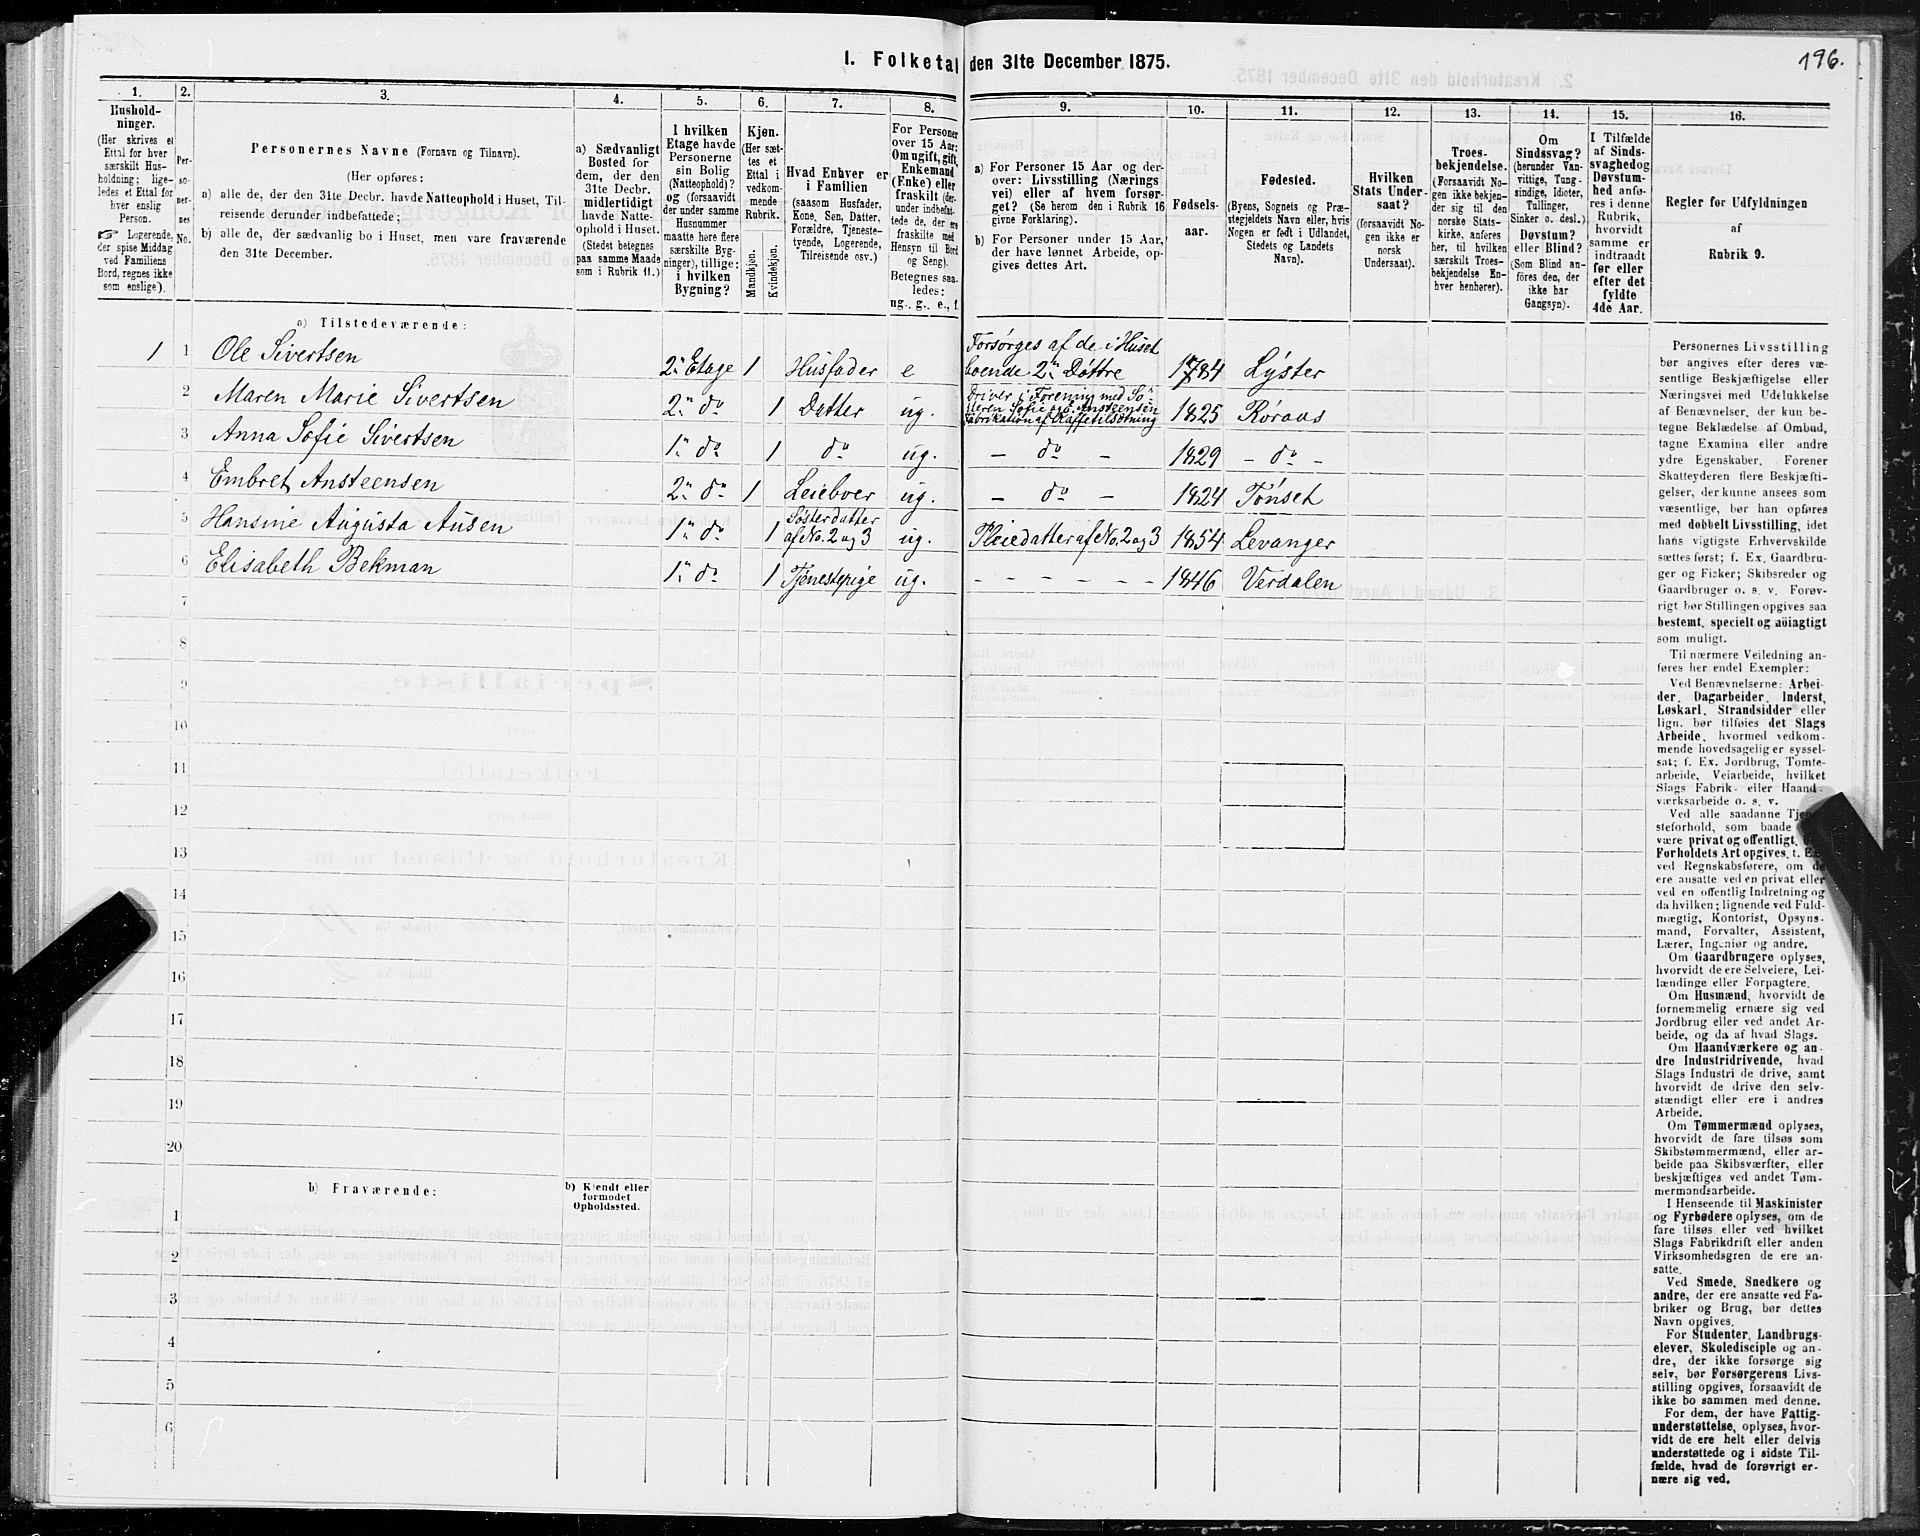 196.
1. Folketal den 31te December 1875.
1. 2. 3. 4. 5. 6. 7. 8. 9. 10. 11. 12. 13. 14. 15. 16.
Hushold-
ninger.
(Her skrives et
Ettal for hver
særskilt Hus-
holdning; lige-
ledes et Ettal for
hver enslig
Person.
☞ Logerende,
der spise Middag
ved Familiens
Bord, regnes ikke
som enslige).
Per-
so-
ner-
nes
No.
Personernes Navne (Fornavn og Tilnavn).
(Her opføres:
a) alle de, der den 31te Decbr. havde Natteophold i Huset, Til-
reisende derunder indbefattede;
b) alle de, der sædvanlig bo i Huset, men vare fraværende
den 31te December.
a) Sædvanligt
Bosted for
dem, der den
31te Decbr.
midlertidigt
havde Natte-
ophold i Huset.
(Stedet betegnes
paa samme Maade
som i Rubrik 11.)
I hvilken
Etage havde
Personerne
sin Bolig
(Natteophold)?
og (forsaavidt
der under samme
Husnummer
maatte høre flere
særskilte Byg-
ninger), tillige:
i hvilken
Bygning?
Kjøn.
(Her sæt-
tes et
Ettal i
vedkom-
mende
Rubrik.
Mandkjøn.
Kvindekjøn.
Hvad Enhver er
i Familien
(saasom Husfader,
Kone, Søn, Datter,
Forældre, Tjeneste-
tyende, Logerende,
Tilreisende osv.)
For Personer
over 15 Aar:
Om ugift, gift,
Enkemand
(Enke) eller
fraskilt (der-
under indbefat-
tede de, der ere
fraskilte med
Hensyn til Bord
og Seng).
Betegnes saa-
ledes:
ug., g., e., f.
a) For Personer 15 Aar og der-
over: Livsstilling (Nærings
vei) eller af hvem forsør-
get? (Se herom den i Rubrik 16
givne Forklaring).
b) For Personer under 15 Aar,
der have lønnet Arbeide, op-
gives dettes Art.
Fødsels-
aar.
Fødested.
(Byens, Sognets og Præ-
stegjeldets Navn eller, hvis
Nogen er født i Udlandet,
Stedets og Landets
Navn).
Hvilken
Stats Under-
saat?
(forsaavidt No-
gen ikke er
norsk
Undersaat).
Troes-
bekjendelse.
(Forsaavidt No-
gen ikke bekjen-
der sig til den
norske Stats-
kirke, anføres
her, til hvilken
særskilt Troes-
bekjendelse En-
hver henhører).
Om
Sindssvag?
(herunder Van-
vittige, Tung-
sindige, Idioter,
Tullinger,
Sinker o. desl.)
Døvstum?
eller Blind?
(Som Blind an-
føres den, der
ikke har
Gangsyn).
I Tilfælde
af Sinds-
svaghed og
Døvstum-
hed anfø-
res i denne
Rubrik,
hvorvidt
samme er
indtraadt
før eller
efter det
fyldte
4de Aar.
Regler for Udfyldningen
af
Rubrik 9.
a) Tilstedeværende:
1 1 Ole Sivertsen 2n Etage 1 Husfader e Forsørges af de i Huset boende 2n Døttre 1784 Lyster
2 Maren Marie Sivertsen 2n do 1 Datter ug. Driver i Forening med Sø- steren Sofie og E. Ansteensen Fabrikation af Kaffetilsætning 1825 Røraas
3 Anna Sofie Sivertsen 1n do 1 do ug. – do – 1829 – do –
4 Embret Ansteensen 2n do 1 Leieboer ug. – do – 1824 Tønset
5 Hansine Augusta Ausen 1n do 1 Søsterdatter af No. 2 og 3 ug. Pleiedatter af No. 2 og 3 1854 Levanger
6 Elisabeth Bekman 1n do 1 Tjenestepige ug. – – – – – – 1846 Verdalen
7
8
9
10
11
12
13
14
15
16
17
18
19
20
b) Fraværende:
b) Kjendt eller
formodet
Opholdssted.
1
2
3
4
5
6
Personernes Livsstilling
bør angives efter deres væ-
sentlige Beskjæftigelse eller
Næringsvei med Udelukkelse
af Benævnelser, der kun be-
tegne Beklædelse af Ombud,
tagne Examina eller andre
ydre Egenskaber. Forener
Skatteyderen flere Beskjæfti-
gelser, der kunne ansees som
væsentlige, bør han opføres
med dobbelt Livsstilling, idet
hans vigtigste Erhvervskilde
sættes først; f. Ex. Gaardbru-
ger og Fisker; Skibsreder og
Gaardbruger o. s. v. Forøv-
rigt bør Stillingen opgives saa
bestemt, specielt og nøiagtigt
som muligt.
Til nærmere Veiledning an-
føres her endel Exempler:
Ved Benævnelserne: Arbei-
der, Dagarbeider, Inderst,
Løskarl, Strandsidder eller
lign. bør tilføies det Slags
Arbeide, hvormed vedkom-
mende hovedsagelig er syssel-
sat; f. Ex. Jordbrug, Tomte-
arbeide, Veiarbeide, hvilket
Slags Fabrik- eller Haand-
værksarbeide o. s. v.
Ved alle saadanne
steforhold, som baade
være privat og offentligt,
Forholdets Art opgives, t.
ved Regnskabsførere, om
ere ansatte ved en privat eller
ved en offentlig Indretning og
da hvilken; lignende ved Fuld-
mægtig, Kontorist, Opsyns-
mand, Forvalter, Assistent,
Lærer, Ingeniør og andre.
Om Gaardbrugere oplyses,
hvorvidt de ere Selveiere, Lei-
lændinge eller Forpagtere.
Om Husmænd, hvorvidt de
fornemmelig ernære sig ved
Jordbrug eller ved andet Ar-
beide, og da af hvad Slags.
Om Haandværkere og an-
dre Industridrivende, hvad
Slags Industri de drive, samt
hvorvidt de drive den selv-
stændigt eller ere i andres
Arbeide.
Om Tømmermænd oplyses,
hvorvidt de fare tilsøs som
Skibstømmermænd, eller ar-
beide paa Skibsværfter, eller
beskjæftiges ved andet Tøm-
mermandsarbeide.
I Henseende til Maskinister
og Fyrbødere oplyses, om de
fare tilsøs eller ved hvilket
Slags Fabrikdrift eller anden
Virksomhedsgren de ere an-
satte.
Ved Smede, Snedkere og
andre, der ere ansatte ved Fa-
briker og Brug, bør dettes
Navn opgives.
For Studenter, Landbrugs-
elever, Skoledisciple og an-
dre, der ikke forsørge sig
selv, bør Forsørgerens Livs-
stilling opgives, forsaavidt de
ikke bo sammen med denne.
For dem, der have Fattig-
understøttelse, oplyses, hvor-
vidt de ere helt eller delvis
understøttede og i sidste Til-
fælde, hvad de forøvrigt er-
nære sig ved.